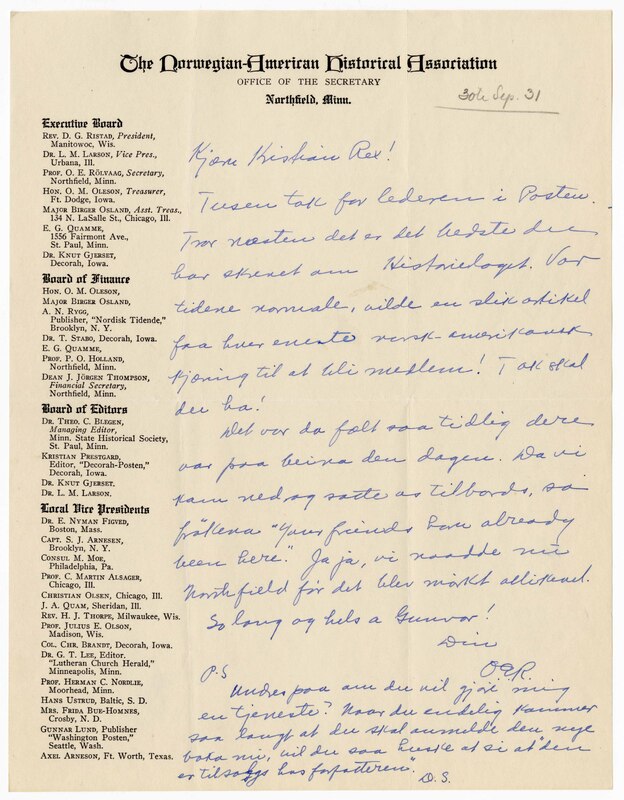 The Norwegian-American Historical Association
OFFICE OF THE SECRETARY
Northfield, Minn.
30te Sep. 31
Executive Board
REV. D. G. RISTAD, President,
Manitowoc, Wis.
DR. L. M. LARSON, Vice Pres.,
Urbana, Ill.
PROF. O. E. RÖLVAAG, Secretary,
Northfield, Minn.
HON. O. M. OLESON, Treasurer,
Ft. Dodge, Iowa.
MAJOR BIRGER OSLAND, Asst. Treas.,
134 N. LaSalle St., Chicago, Ill.
E. G. QUAMME,
1556 Fairmont Ave.,
St. Paul, Minn.
DR. KNUT GJERSET,
Decorah, Iowa.
Board of Finance
HON. O. M. OLESON,
MAJOR BIRGER OSLAND,
A. N. RYGG,
Publisher, "Nordisk Tidende,"
Brooklyn, N. Y.
DR. T. STABO, Decorah, Iowa.
E. G. QUAMME,
PROF. P. O. HOLLAND,
Northfield, Minn.
DEAN J. JÖRGEN THOMPSON,
Financial Secretary,
Northfield, Minn.
Board of Editors
DR. THEO. C. BLEGEN,
Managing Editor,
Minn. State Historical Society,
St. Paul, Minn.
KRISTIAN PRESTGARD,
Editor, "Decorah-Posten,"
Decorah, Iowa.
DR. KNUT GJERSET.
DR. L. M. LARSON.
Local Vice Presidents
DR. E. NYMAN FIGVED,
Boston, Mass.
CAPT. S. J. ARNESEN,
Brooklyn, N. Y.
CONSUL M. MOE,
Philadelphia, Pa.
PROF. C. MARTIN ALSAGER,
Chicago, Ill.
CHRISTIAN OLSEN, Chicago, Ill.
J. A. QUAM, Sheridan, Ill.
REV. H. J. THORPE, Milwaukee, Wis.
PROF. JULIUS E. OLSON,
Madison, Wis.
COL. CHR. BRANDT, Decorah, Iowa.
DR. G. T. LEE, Editor.
"Lutheran Church Herald,"
Minneapolis, Minn.
PROF. HERMAN C. NORDLIE,
Moorhead, Minn.
HANS USTRUD, Baltic, S. D.
MRS. FRIDA BUE-HOMNES,
Crosby, N. D.
GUNNAR LUND, Publisher
"Washington Posten,"
Seattle, Wash.
AXEL ARNESON, Ft. Worth, Texas.
Kjære Kristian Rex!
Tusen tak for lederen i Posten.
Tror næsten det er det bedste du
har skrevet om Historielaget. Var
tidene normale, vilde en slik artikel
faa hver eneste norsk-amerikansk
kjæring til at bli medlem! Tak skal
du ha!
Det var da fælt saa tidlig dere
var paa beina den dagen. Da vi
kam ned og satte os tilbords, sa
frøkena "Your friends have already
been here". Ja ja, vi naadde nu
Northfield før det blev mørkt allikevel.
So long og hels a Gunvor!
Din
OER.
P.S
Undres paa om du vil gjøre mig
en tjeneste? Naar du endelig kommer
saa langt at du skal anmelde den nye
boka mi, vil du saa huske at si at "den
er tilsalgs hos forfatteren".
D. S.